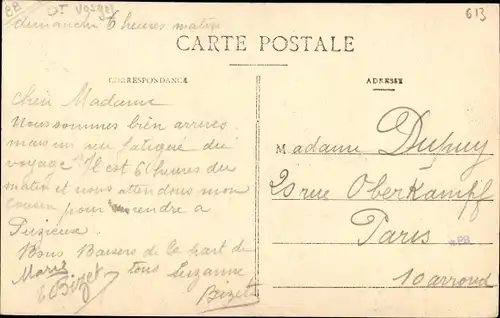 88 DT Vosges
613
dimanche 6 heures matin
CARTE POSTALE
CORRESPONDANCE
ADRESSE
Cher Madame
Nous sommes bien arrives
mais un peu fatigué du
voyage Il est 6 heures du
matin et nous attendons mon
cousin pour rendre a
Puzieux.
Bons Baisers de la part de
tous Suzanne
Marie Bizet
Bizet
Madame Dupuy
29 rue Oberkampf
Paris
10 arrond